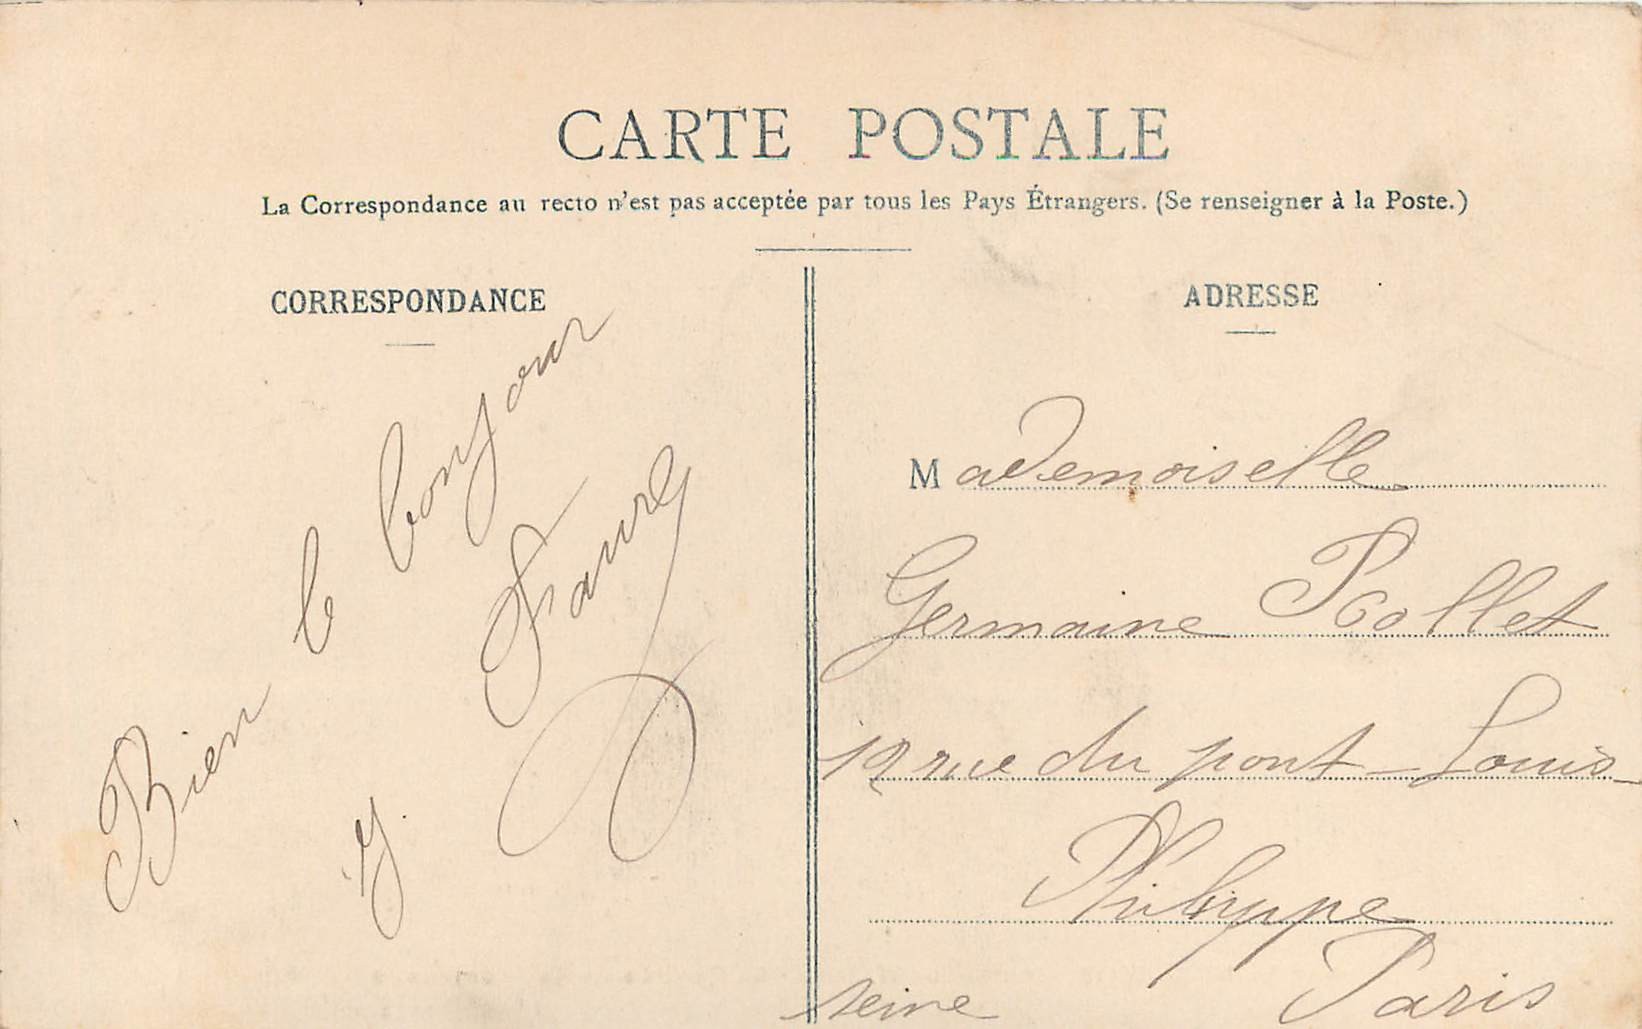 CARTE POSTALE
La Correspondance au recto n'est pas acceptée par tous les Pays Étrangers. (Se renseigner à la Poste.)
CORRESPONDANCE
Bien le bonjour
y. Faure
ADRESSE
Mademoiselle
Germaine Pollet
12 rue du pont-Louis-
Philippe
Paris
seine